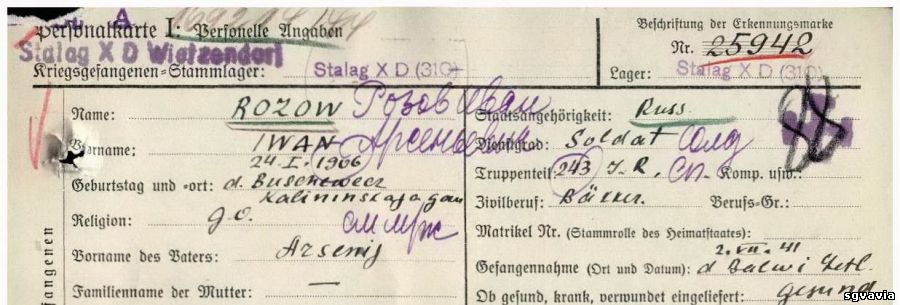 Personalkarte I: Personelle Angaben
Beschriftung der Erkennungsmarke
Stalag X D Wietzendorf
Nr. 25942
Kriegsgefangenen-Stammlager: Stalag X D (310)
Lager: Stalag X D (310)
Name: ROZOW Розов Иван
Staatsangehörigkeit: Russ.
Vorname: IWAN Арсеньевич
Dienstgrad: Soldat Солд
24.I.1906
Truppenteil: 243 I.R. СП. Komp. usw.:
Geburtstag und -ort: d.
Kalininskaja
Zivilberuf: Bäcker. Berufs-Gr.:
Religion: g.o.
Matrikel Nr. (Stammrolle des Heimatstaates):
Vorname des Vaters: Arsenij
2.VII.41
Gefangennahme (Ort und Datum): d Balwi Letl.
Familienname der Mutter: —
Ob gesund, krank, verwundet eingeliefert: gesund
sgvavia